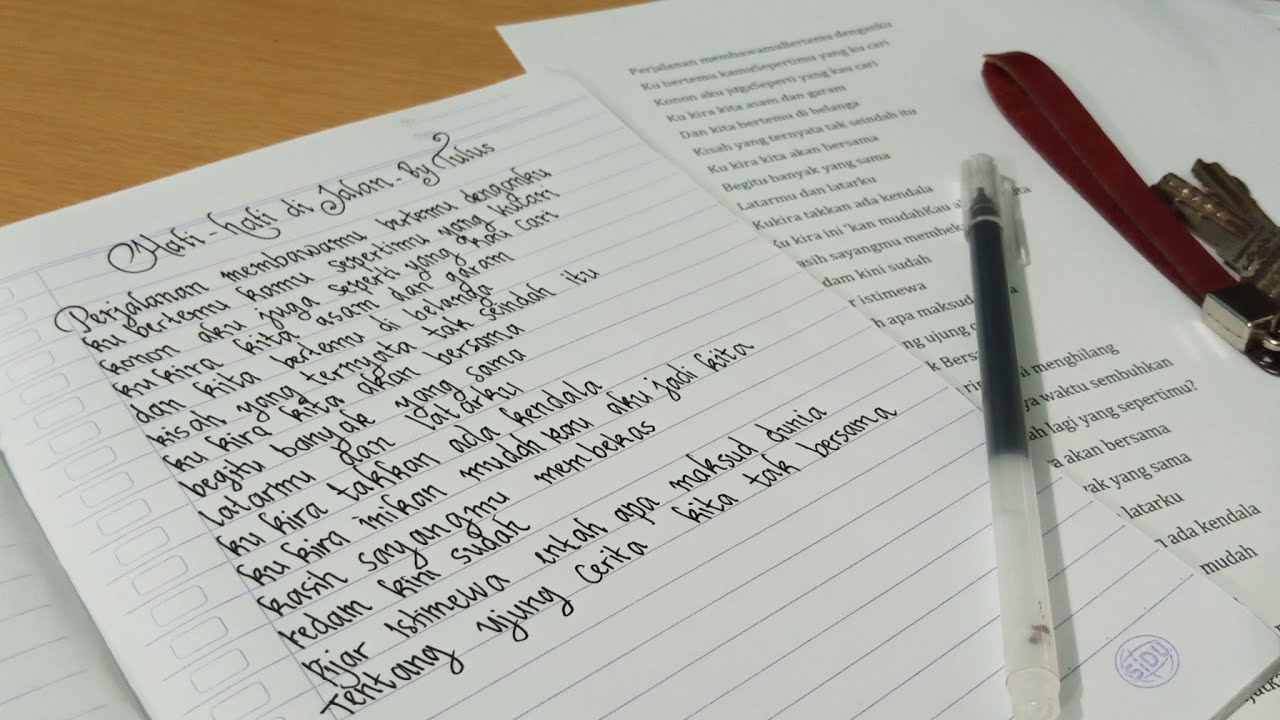 Hati-Hati di Jalan - By Tulus
Perjalanan membawamu bertemu denganku
ku bertemu kamu sepertimu yang kucari
konon aku juga seperti yang kau cari
ku kira kita asam dan garam
dan kita bertemu di belanga
kisah yang ternyata tak seindah itu
ku kira kita akan bersama
begitu banyak yang sama
latarmu dan latarku
ku kira takkan ada kendala
ku kira inikan mudah kau aku jadi kita
kasih sayangmu membekas
redam kini sudah
pijar istimewa entah apa maksud dunia
Tentang ujung cerita kita tak bersama
SiDU
Perjalanan membawamuBertemu denganku
Ku bertemu kamuSepertimu yang ku cari
Konon aku jugaSeperti yang kau cari
Ku kira kita asam dan garam
Dan kita bertemu di belanga
Kisah yang ternyata tak seindah itu
Ku kira kita akan bersama
Begitu banyak yang sama
Latarmu dan latarku
Kukira takkan ada kendala
Ku kira ini 'kan mudahKau a ta
asih sayangmu membek
dam kini sudah
r istimewa
h apa maksud
ng ujung
k Bers
i menghilang
ya waktu sembuhkan
ah lagi yang sepertimu?
a akan bersama
yak yang sama
latarku
ada kendala
mudah